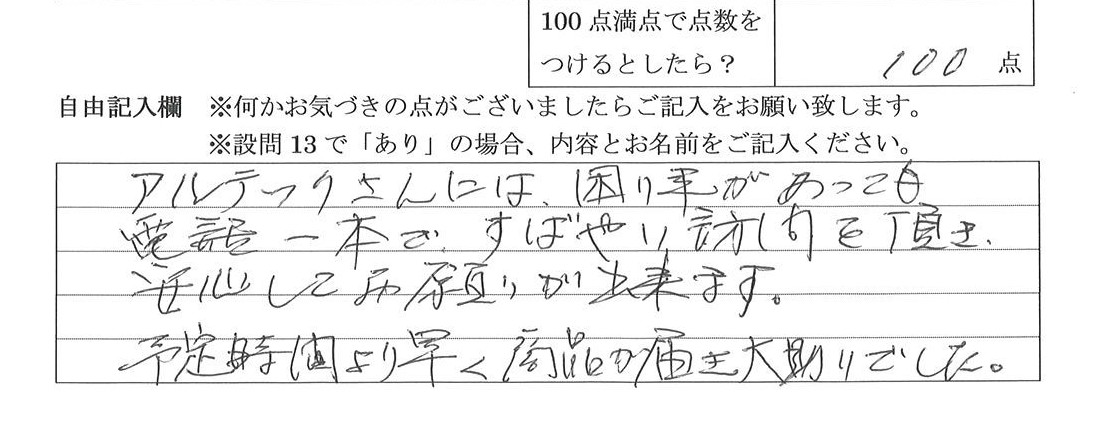 100点満点で点数を
つけるとしたら？
100 点
自由記入欄 ※何かお気づきの点がございましたらご記入をお願い致します。
※設問13で「あり」の場合、内容とお名前をご記入ください。
アルテックさんには、困り事があっても
電話一本で、すばやい訪問を頂き、
安心してお願いが出来ます。
予定時間より早く商品が届き大助りでした。